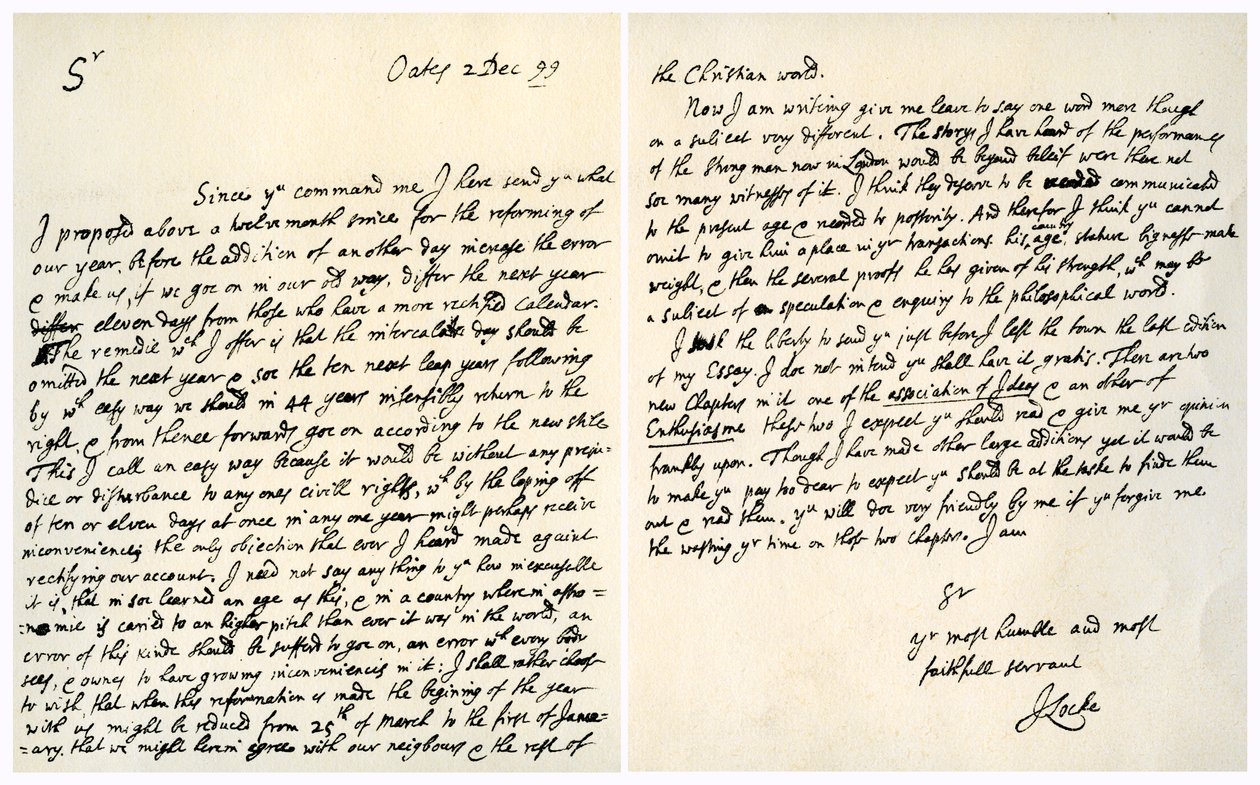 Sr
Oates 2 Dec 99
Since yu command me I here send yu what
I proposed above a twelve month since for the reforming of
our year, before the addition of an other day increase the error
& make us, if we goe on in our old way, differ the next year
differ eleven days from those who have a more rectified Calendar.
The remedie wch I offer is that the intercalate day should be
omitted the next year & soe the ten next leap years following
by wch easy way we should in 44 years insensibly return to the
right, & from thence forwards goe on according to the new stile
This I call an easy way because it would be without any preju=
dice or disturbance to any ones civill rights, wch by the loping off
of ten or eleven days at once in any one year might perhaps receive
inconvenience, the only objection that ever I heard made against
rectifying our account. I need not say any thing to yu how inexcusable
it is, that in soe learned an age as this, & in a country wherein astro=
=nomie is caried to an higher pitch than ever it was in the world, an
error of this kinde should be sufferd to goe on, an error wch every body
sees, & ownes to have growing inconveniencies in it: I shall rather choose
to wish, that when this reformation is made the begining of the year
with us might be reduced from 25th of March to the first of Janu=
=ary. that we might herein agree with our neigbours & the rest of
the Christian world.
Now I am writing give me leave to say one word more though
on a subject very different. The storys I have heard of the performances
of the Strong man now in London would be beyond beleif were there not
soe many witnesses of it. I think they deserve to be communicated
to the present age & recorded to posterity. And therefor I think yu cannot
omit to give him a place in yr transactions his country
age, stature bigness make
weight, & then the several proofs he has given of his strength, wch may be
a subject of speculation & enquiry to the philosophical world.
I took the liberty to send yu just before I left the town the last edition
of my Essay. I doe not intend yu shall have it gratis. There are two
new Chapters in it one of the association of Ideas & an other of
Enthusiasme these two I expect yu should read & give me yr opinion
frankly upon. Though I have made other large additions yet it would be
to make yu pay too dear to expect yu should be at the taske to finde them
out & read them. yu will doe very friendly by me if yu forgive me
the wasting yr time on those two chapters. I am
Sr
yr most humble and most
faithfull servant
J Locke